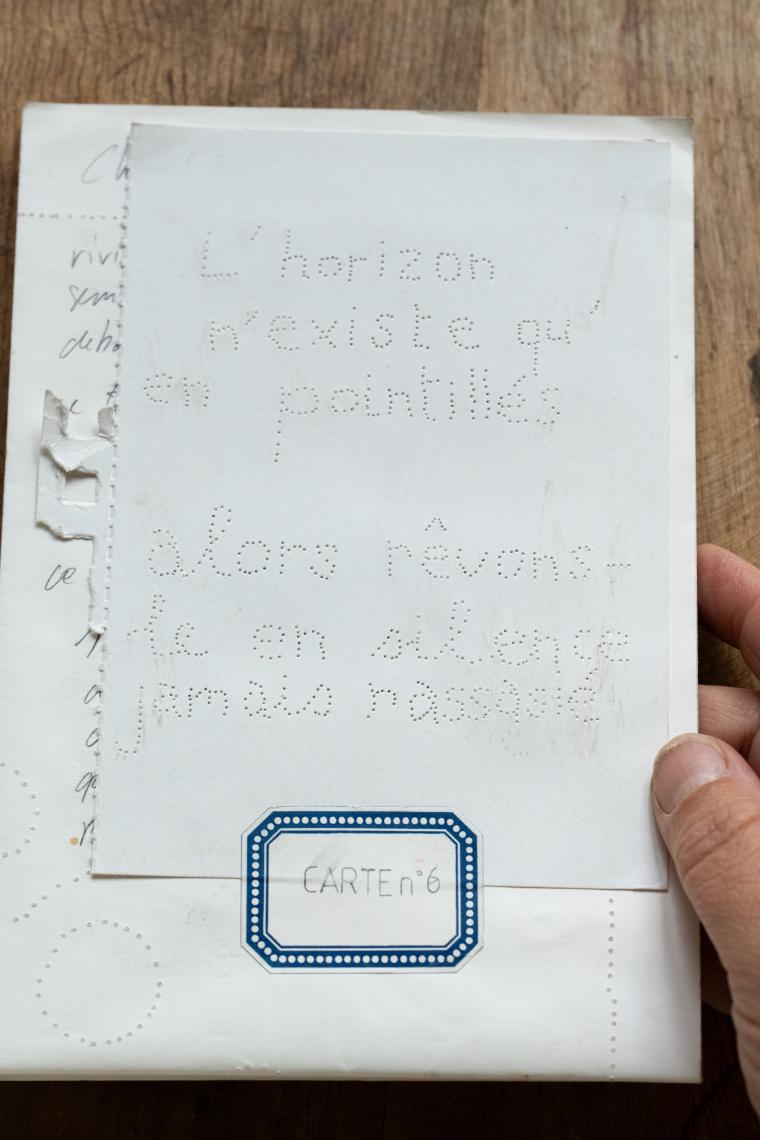 L'horizon
n'existe qu'
en pointillés
alors rêvons-
le en silence
jamais rassasié
CARTE n°6